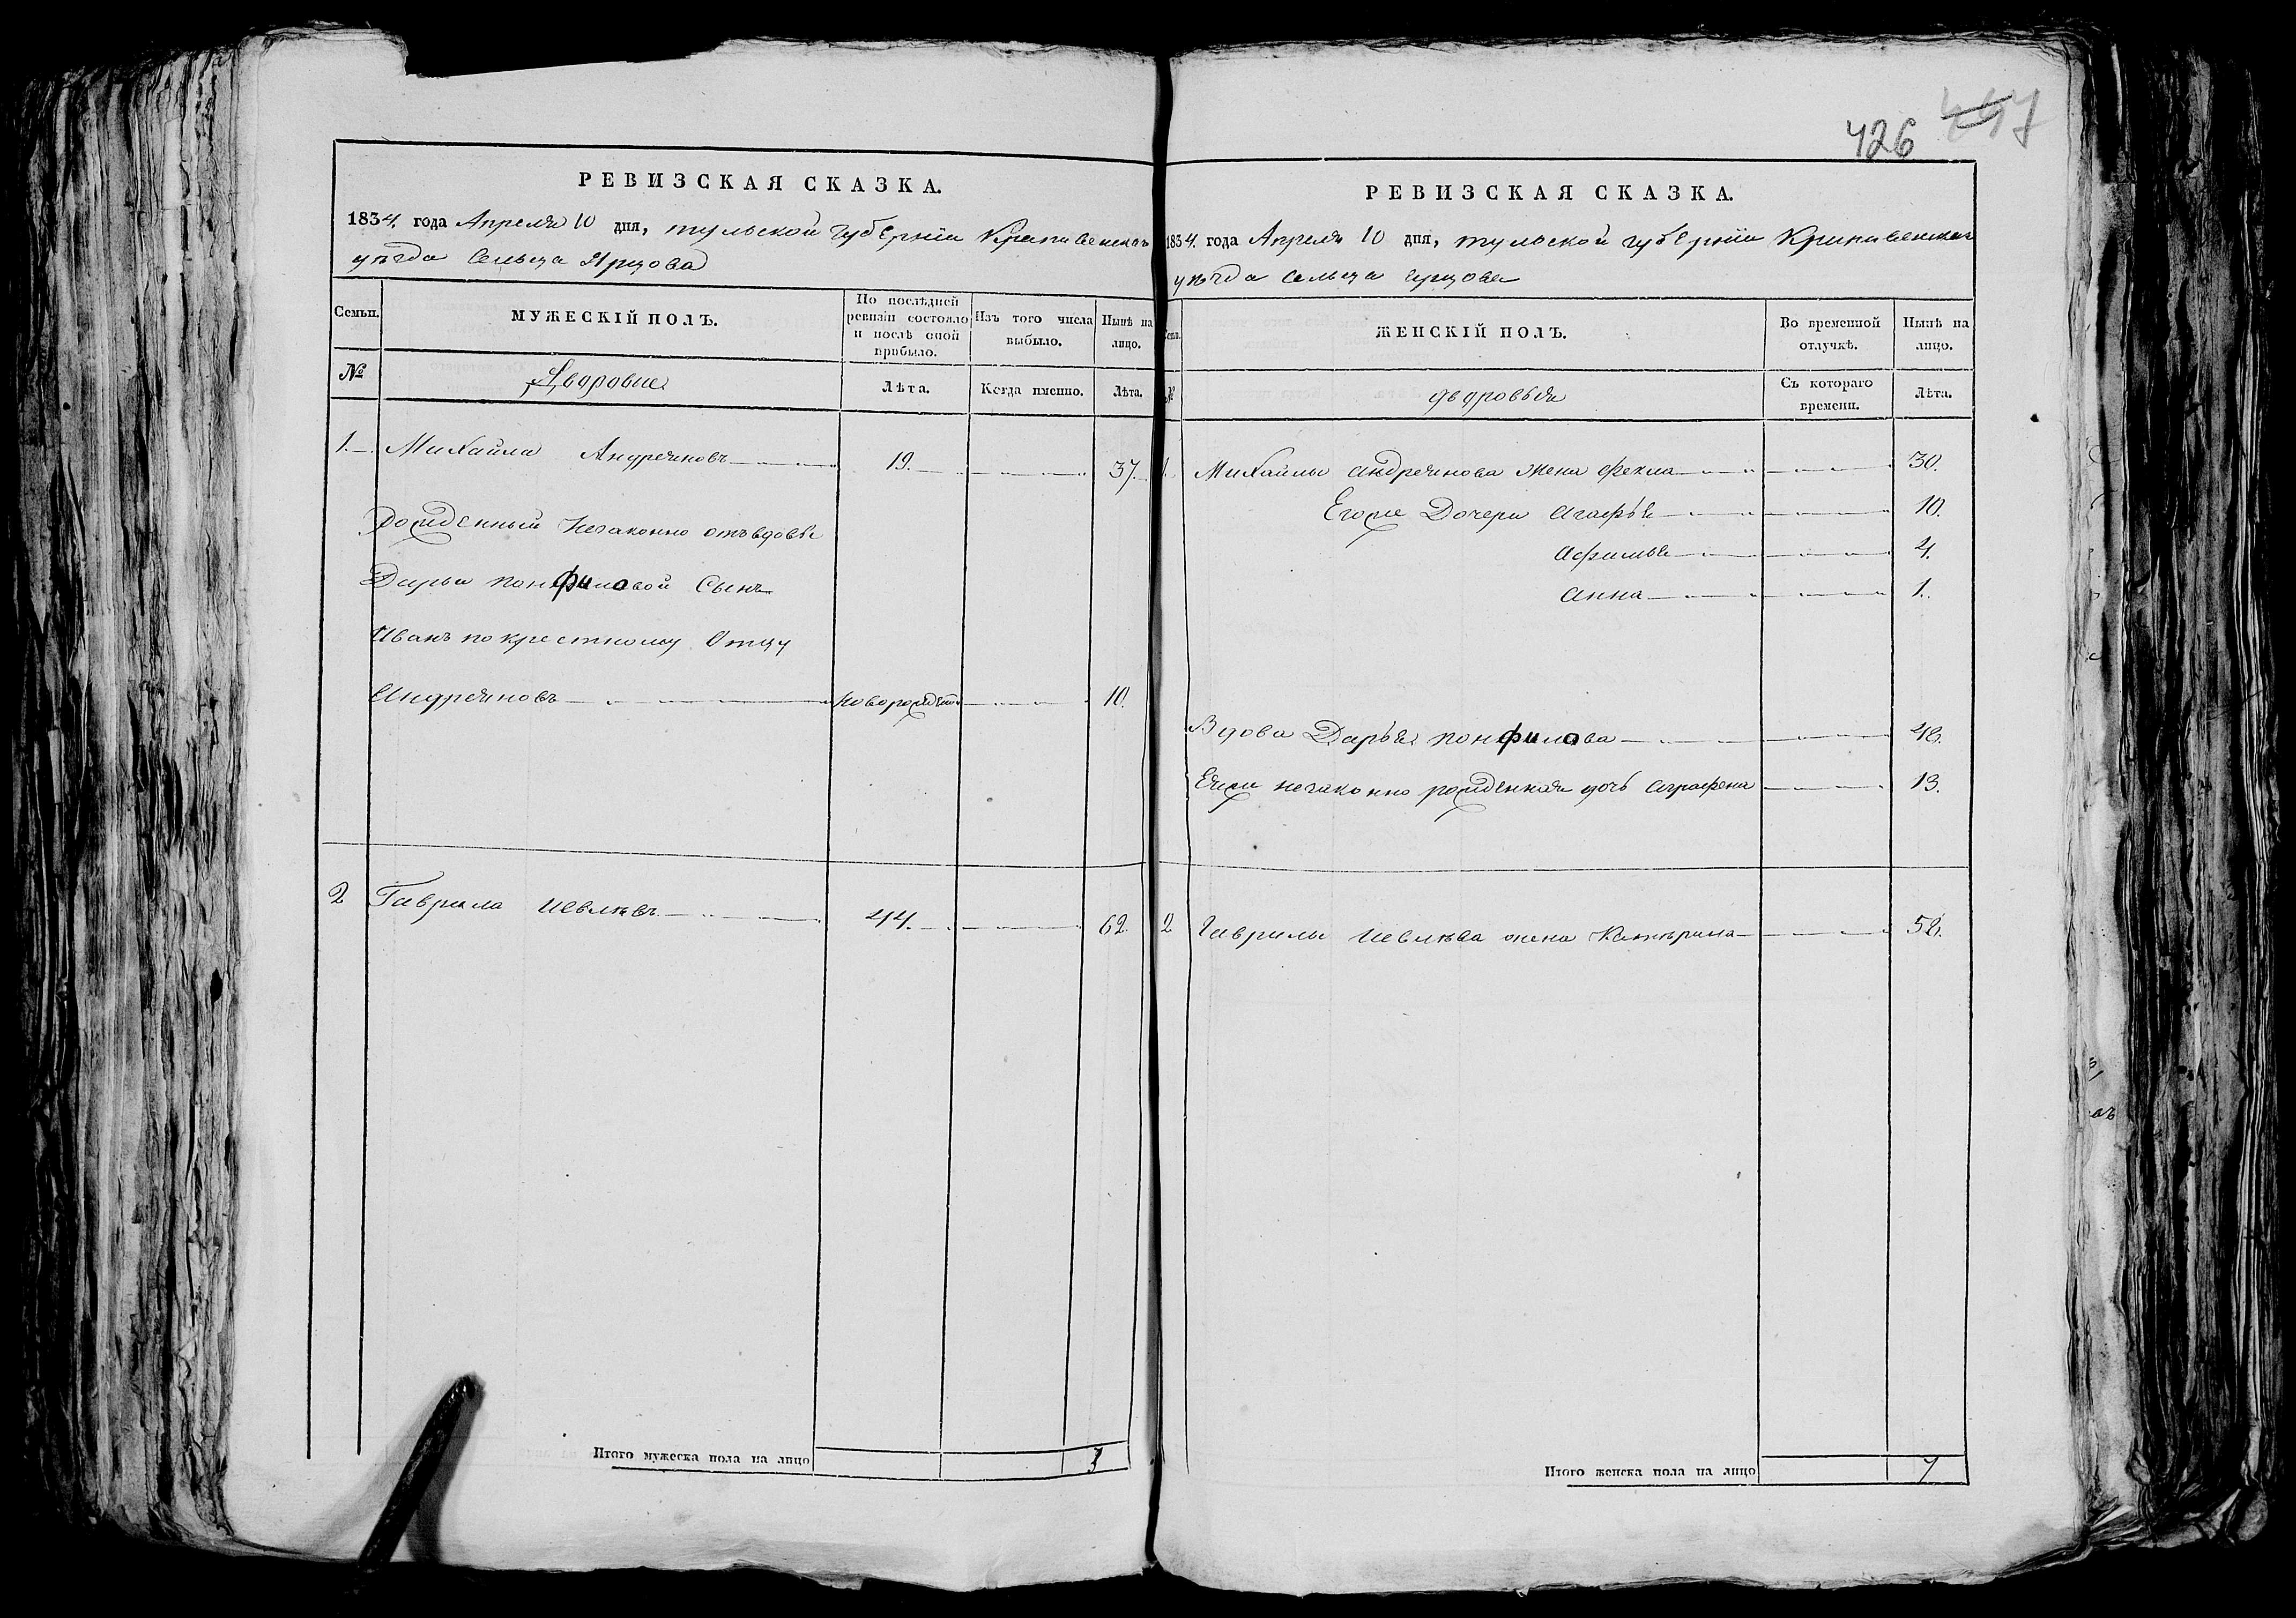 426 447
РЕВИЗСКАЯ СКАЗКА.
1834. года Апреля 10 дня, тульской губерніи Крапивенскаго
уѣзда Сельца Ярцова
Семьи.
МУЖЕСКІЙ ПОЛЪ.
По послѣдней ревизіи состояло и послѣ оной прибыло.
Изъ того числа выбыло.
Нынѣ на лицо.
№
Дворовые
Лѣта.
Когда именно.
Лѣта.
1. Михайла Андреяновъ 19. 37.
Рожденный незаконно отъ вдовы
Дарьи панфиловой Сынъ
Иванъ по крестному Отцу
Андреяновъ новорожден 10.
2 Гаврила Иевлевъ 44. 62.
Итого мужеска пола на лицо 3
РЕВИЗСКАЯ СКАЗКА.
1834. года Апреля 10 дня, тульской губерніи Крапивенскаго
уѣзда сельца ярцова
ЖЕНСКІЙ ПОЛЪ.
Во временной отлучкѣ.
Нынѣ на лицо.
№
дворовыя
Съ котораго времени.
Лѣта.
1. Михайлы андреянова жена фекла 30.
Егоже Дочери агафья 10.
афимья 4.
анна 1.
Вдова Дарья понфилова 48.
Еяже незаконно рожденная дочь аграфена 13.
2 Гаврилы Иевлева жена Катерина 58.
Итого женска пола на лицо 7